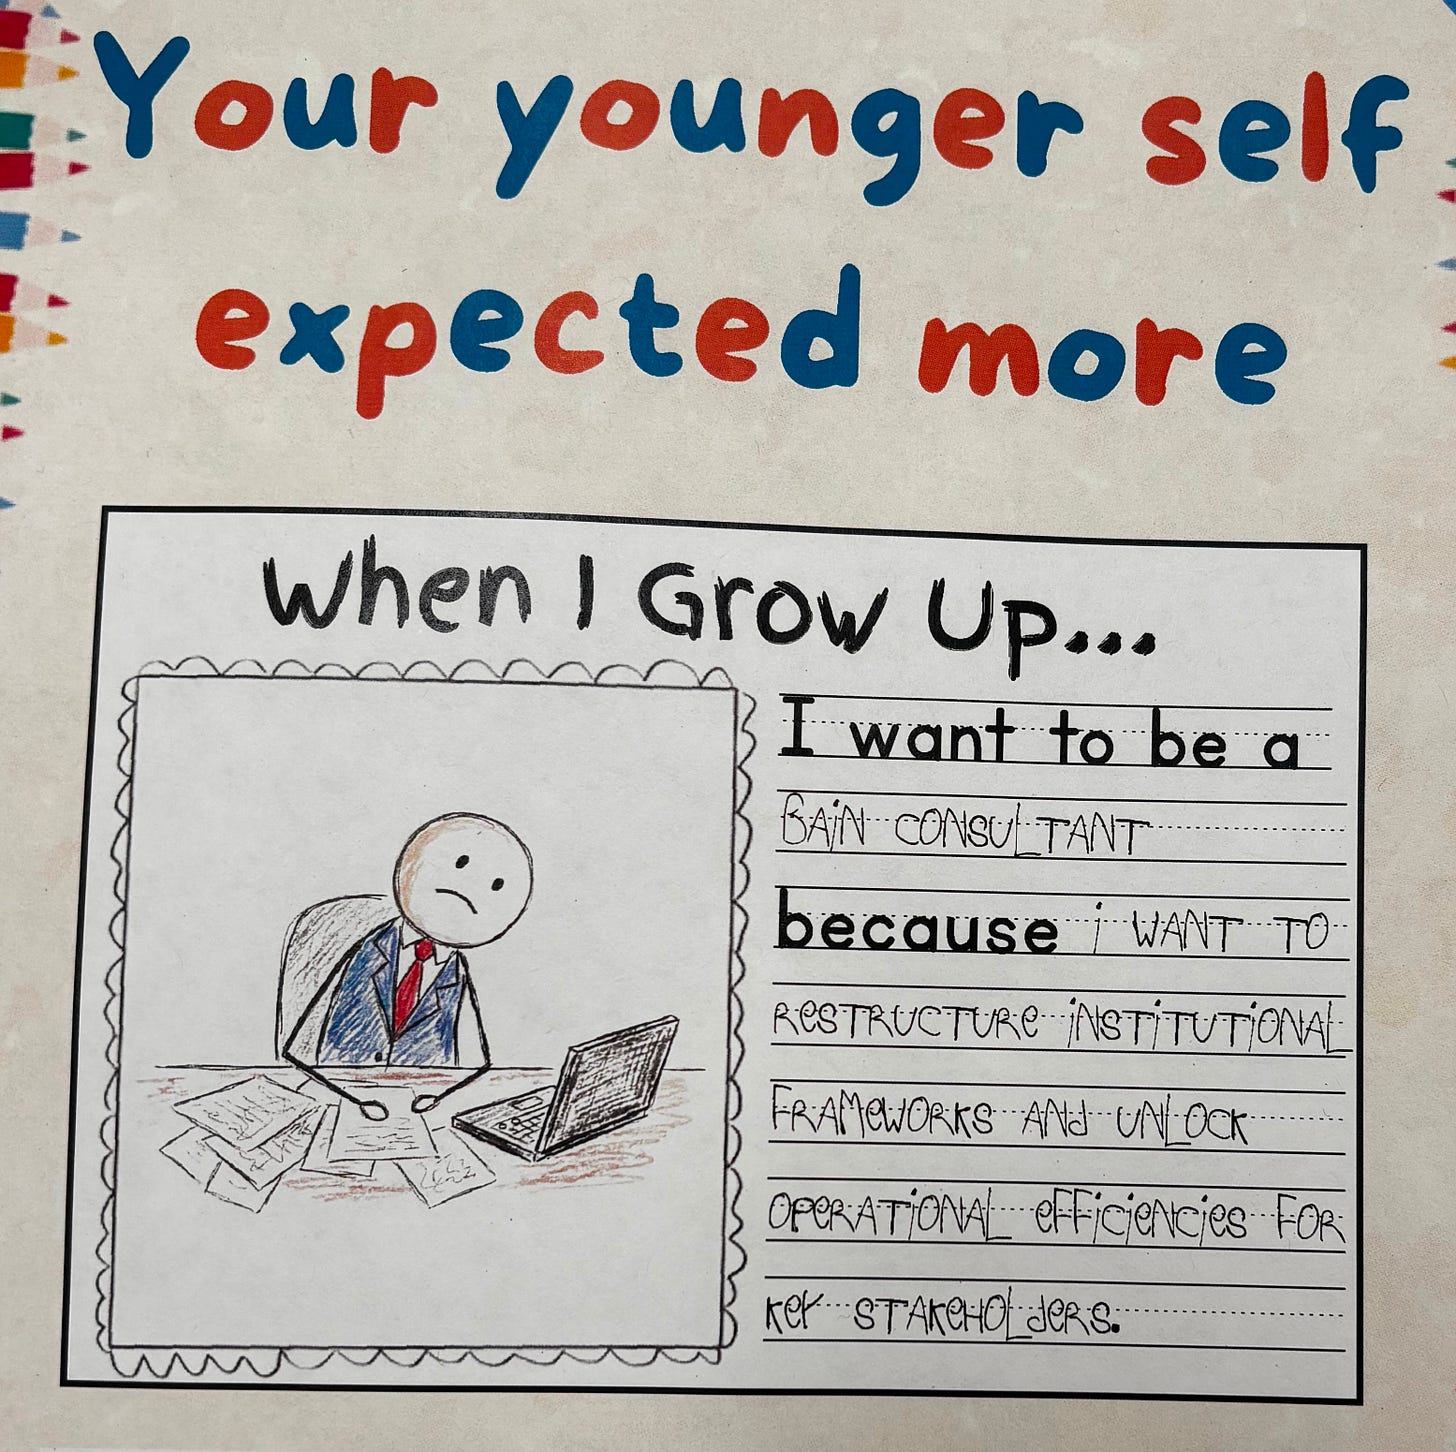 Your younger self
expected more
When I Grow Up...
I want to be a
BAiN CONSULTANT
because i WANT TO
RESTRUCTURE iNSTiTUTiONAL
FRAMeWORKS ANd UNLOCK
OPeRATiONAL eFFiCieNCieS FOR
KeY STAKeHOLdeRS.